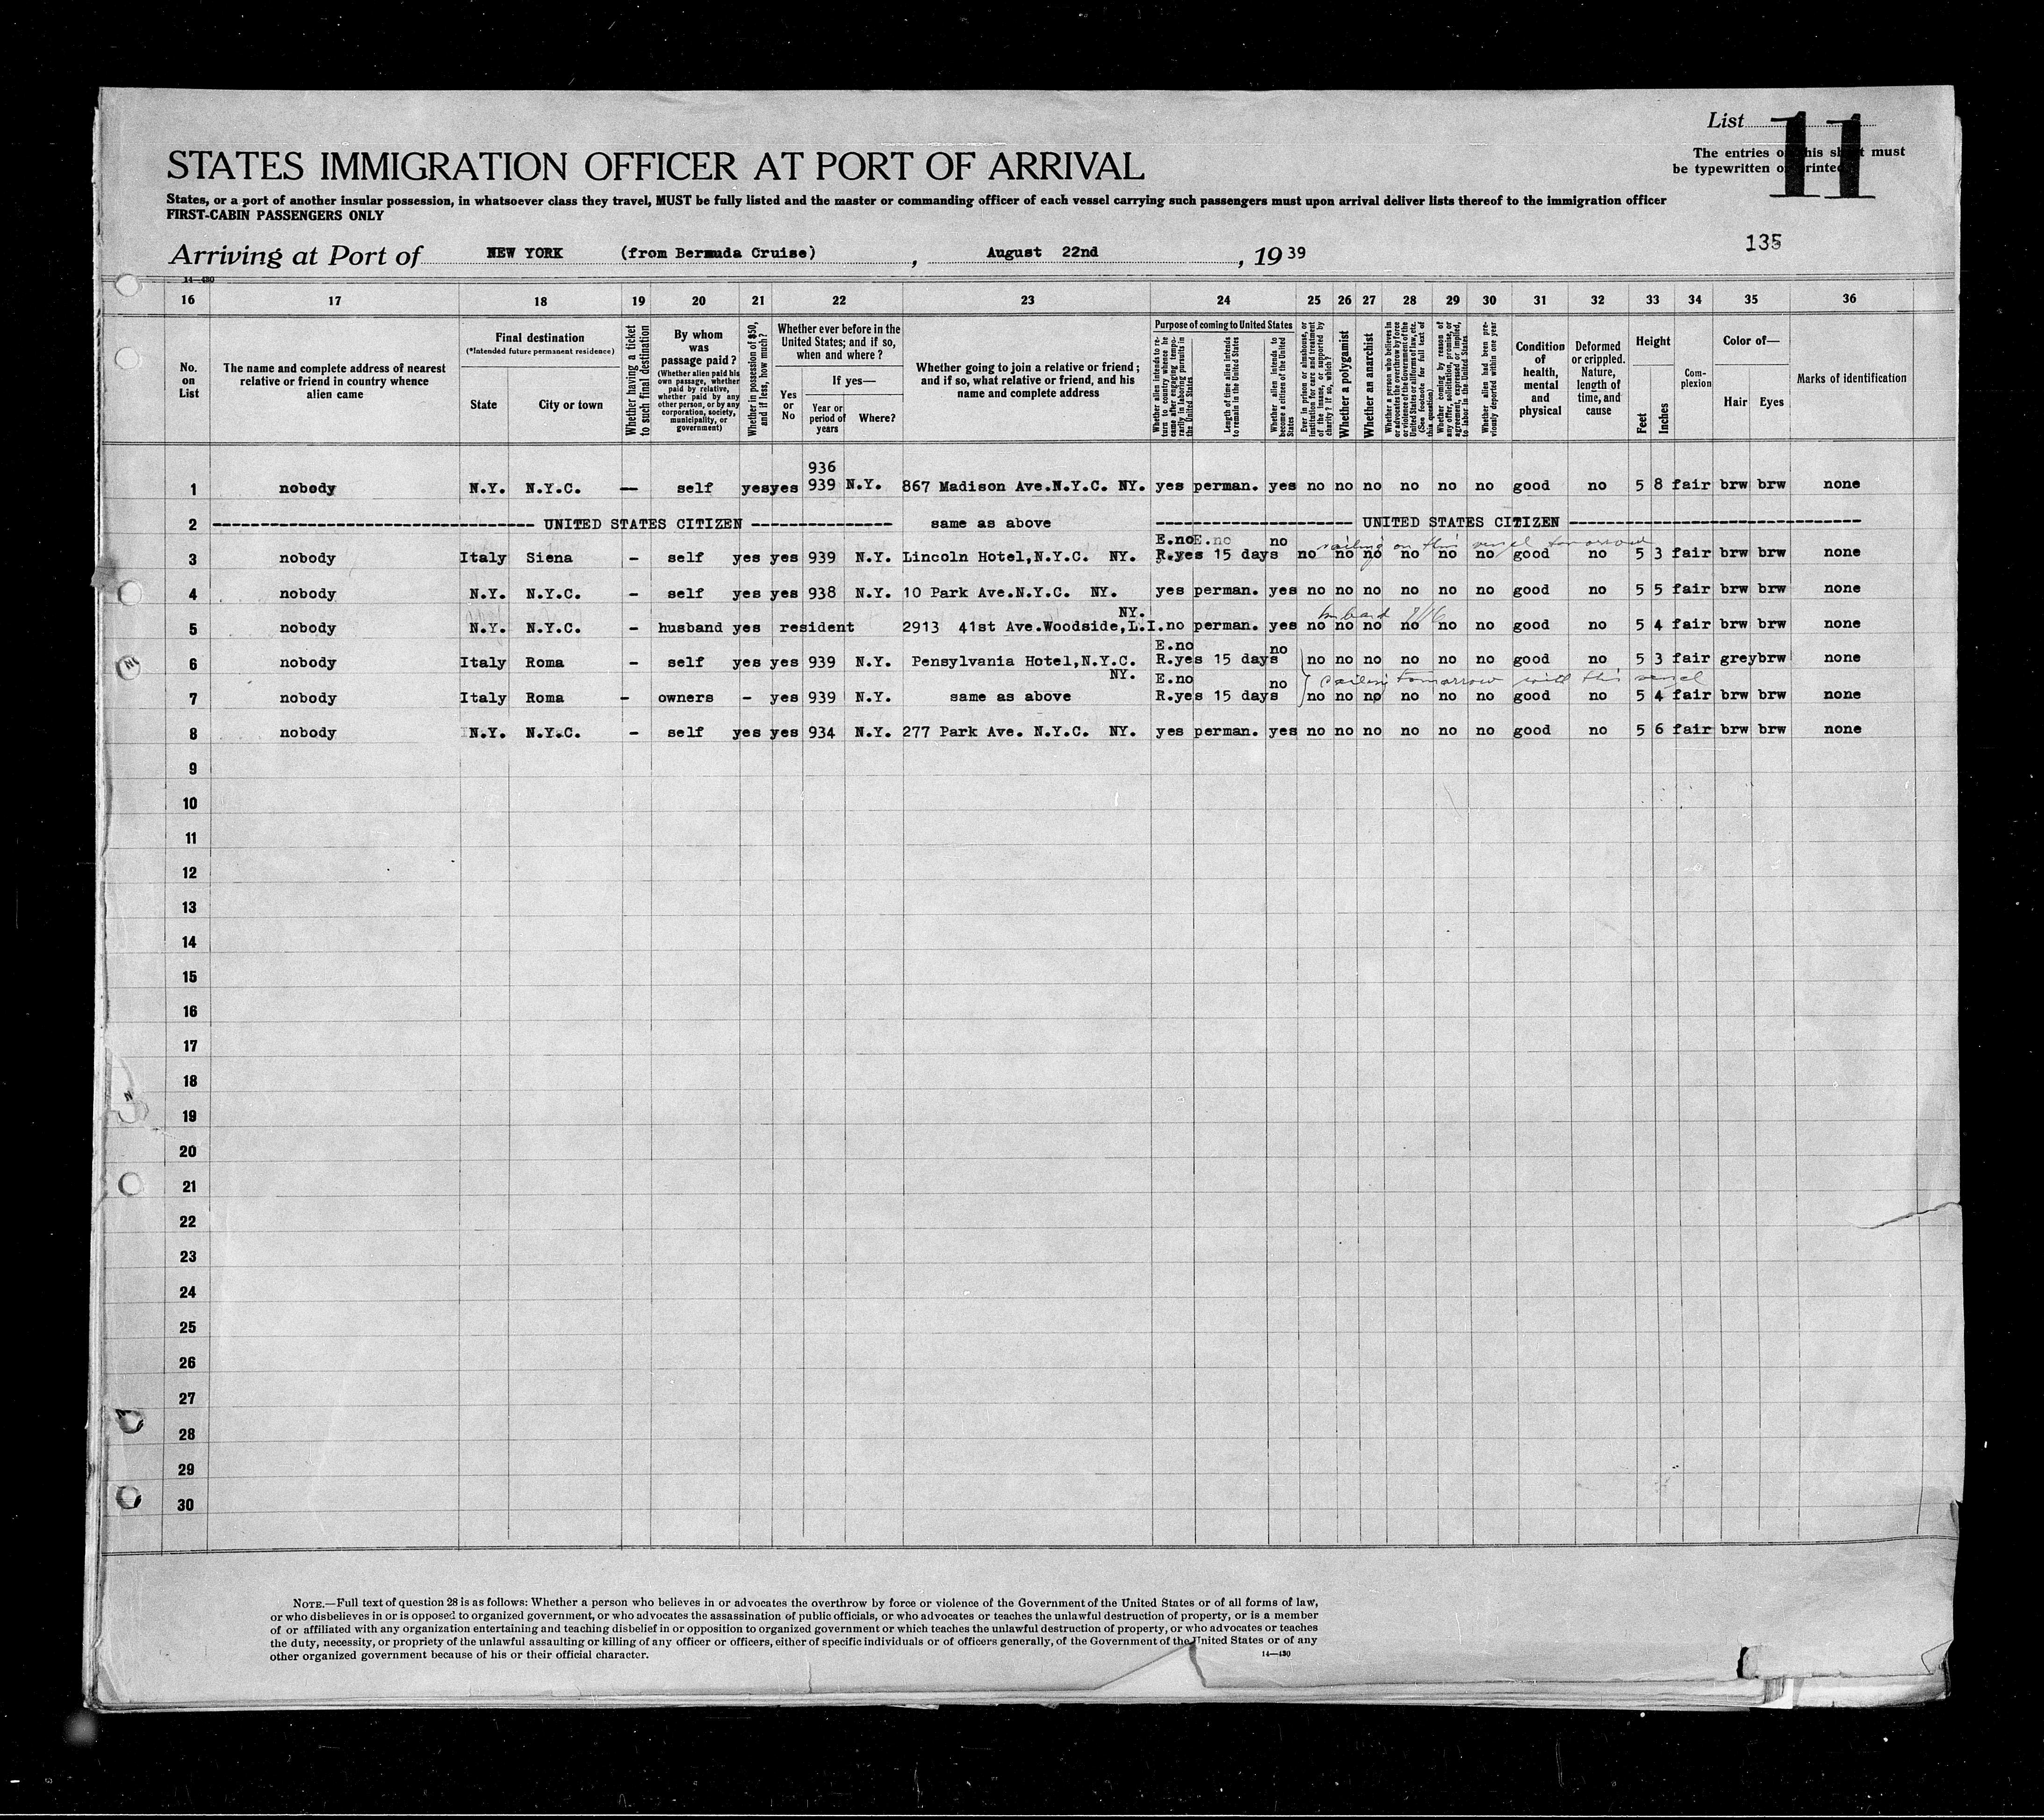 List 11
The entries on this sheet must
be typewritten or printed
STATES IMMIGRATION OFFICER AT PORT OF ARRIVAL
States, or a port of another insular possession, in whatsoever class they travel, MUST be fully listed and the master or commanding officer of each vessel carrying such passengers must upon arrival deliver lists thereof to the immigration officer
FIRST-CABIN PASSENGERS ONLY
135
Arriving at Port of NEW YORK (from Bermuda Cruise) , August 22nd , 19 39
14—430
16 17 18 19 20 21 22 23 24 25 26 27 28 29 30 31 32 33 34 35 36
No. on List
The name and complete address of nearest relative or friend in country whence alien came
Final destination
(*Intended future permanent residence)
State
City or town
Whether having a ticket to such final destination
By whom was passage paid?
(Whether alien paid his own passage, whether paid by relative, whether paid by any other person, or by any corporation, society, municipality, or government)
Whether in possession of $50, and if less, how much?
Whether ever before in the United States; and if so, when and where?
Yes or No
If yes—
Year or period of years
Where?
Whether going to join a relative or friend; and if so, what relative or friend, and his name and complete address
Purpose of coming to United States
Whether alien intends to return to country whence he came after engaging temporarily in laboring pursuits in the United States
Length of time alien intends to remain in the United States
Whether alien intends to become a citizen of the United States
Ever in prison or almshouse, or institution for care and treatment of the insane, or supported by charity? If so, which?
Whether a polygamist
Whether an anarchist
Whether a person who believes in or advocates the overthrow by force or violence of the Government of the United States or all forms of law, etc. (See footnote for full text of this question)
Whether coming by reason of any offer, solicitation, promise, or agreement, expressed or implied, to labor in the United States
Whether alien had been previously deported within one year
Condition of health, mental and physical
Deformed or crippled. Nature, length of time, and cause
Height
Feet
Inches
Complexion
Color of—
Hair
Eyes
Marks of identification
936
1 nobody N.Y. N.Y.C. — self yes yes 939 N.Y. 867 Madison Ave.N.Y.C. NY. yes perman. yes no no no no no no good no 5 8 fair brw brw none
2 ---------- UNITED STATES CITIZEN ---------- same as above ---------- UNITED STATES CITIZEN ----------
E.no E.no no sailing on this vessel tomorrow
3 nobody Italy Siena - self yes yes 939 N.Y. Lincoln Hotel,N.Y.C. NY. R.yes 15 days no no no no no no good no 5 3 fair brw brw none
4 nobody N.Y. N.Y.C. - self yes yes 938 N.Y. 10 Park Ave.N.Y.C. NY. yes perman. yes no no no no no no good no 5 5 fair brw brw none
NY. 8/16
5 nobody N.Y. N.Y.C. - husband yes resident 2913 41st Ave.Woodside,L.I. no perman. yes no no no no no no good no 5 4 fair brw brw none
E.no no
6 nobody Italy Roma - self yes yes 939 N.Y. Pensylvania Hotel,N.Y.C. R.yes 15 days no no no no no no good no 5 3 fair grey brw none
NY. E.no no sailing tomorrow with this vessel
7 nobody Italy Roma - owners - yes 939 N.Y. same as above R.yes 15 days no no no no no no good no 5 4 fair brw brw none
8 nobody N.Y. N.Y.C. - self yes yes 934 N.Y. 277 Park Ave. N.Y.C. NY. yes perman. yes no no no no no no good no 5 6 fair brw brw none
9
10
11
12
13
14
15
16
17
18
19
20
21
22
23
24
25
26
27
28
29
30
NOTE.—Full text of question 28 is as follows: Whether a person who believes in or advocates the overthrow by force or violence of the Government of the United States or of all forms of law,
or who disbelieves in or is opposed to organized government, or who advocates the assassination of public officials, or who advocates or teaches the unlawful destruction of property, or is a member
of or affiliated with any organization entertaining and teaching disbelief in or opposition to organized government or which teaches the unlawful destruction of property, or who advocates or teaches
the duty, necessity, or propriety of the unlawful assaulting or killing of any officer or officers, either of specific individuals or of officers generally, of the Government of the United States or of any
other organized government because of his or their official character.
14—430